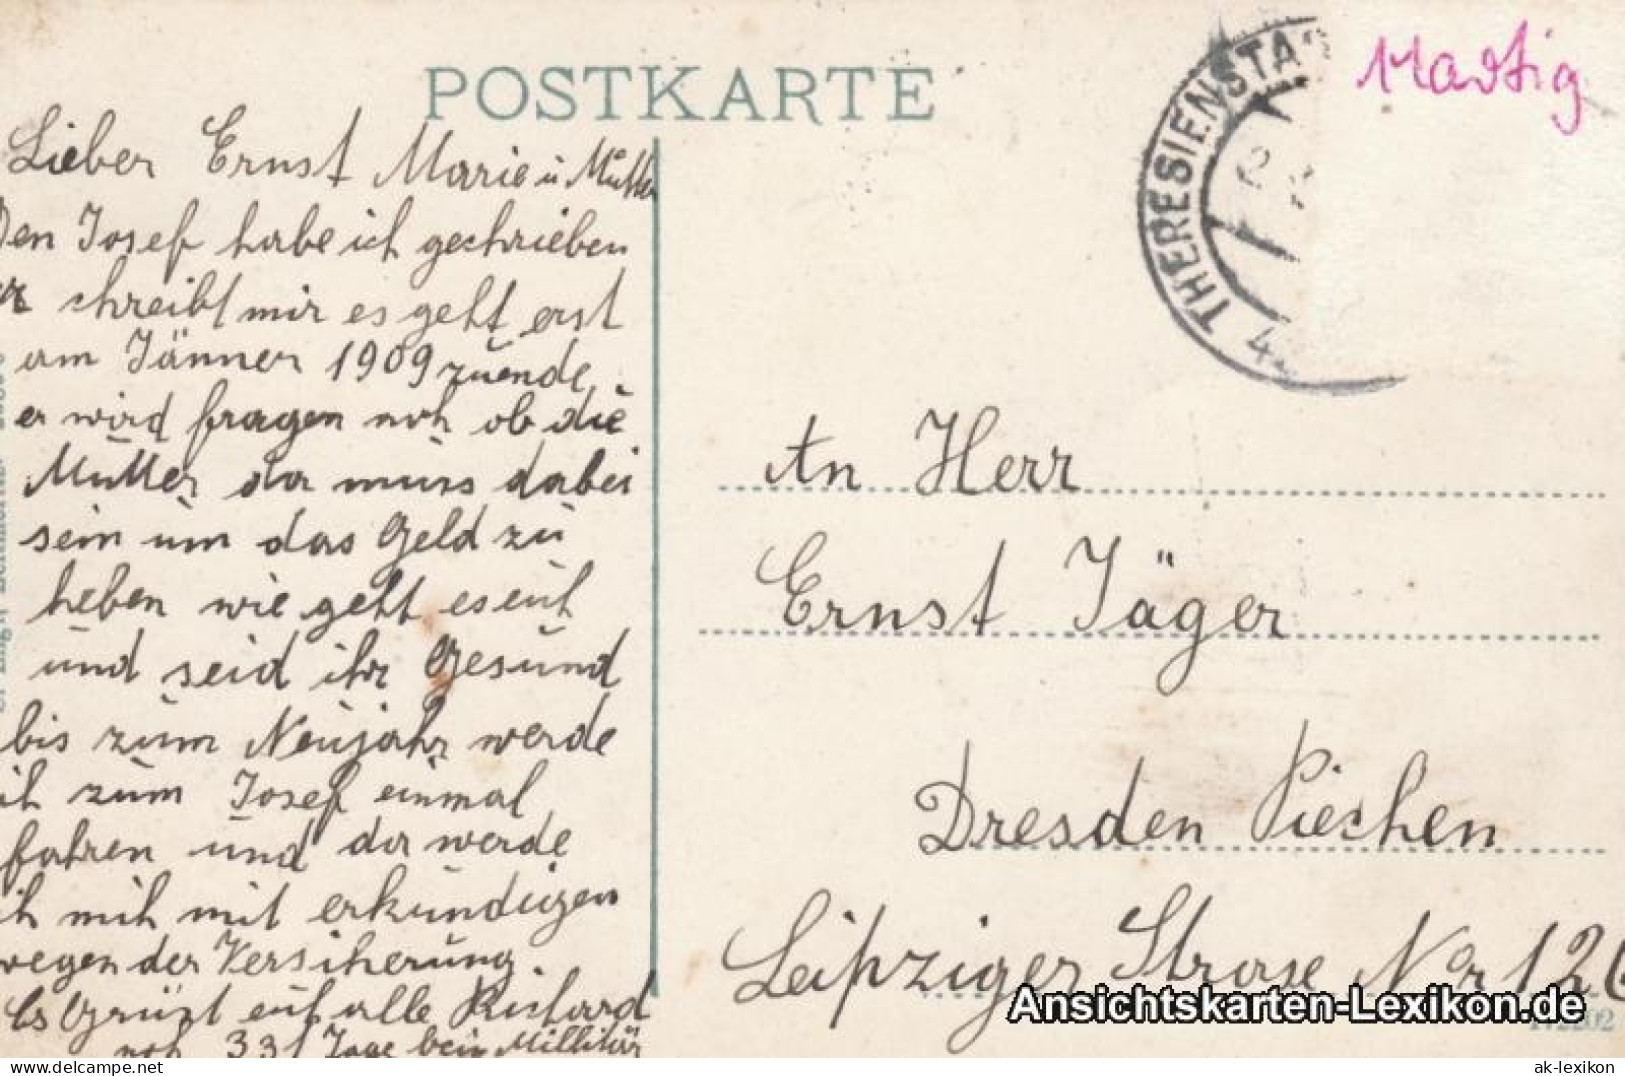 POSTKARTE
THERESIENSTA
4.
Martig
Lieber Ernst Marie u Mutter
Den Josef habe ich geschrieben
er schreibt mir es geht erst
am Jänner 1909 zuende,
er wird fragen noh ob die
Mutter da muss dabei
sein um das Geld zu
heben wie geht es euh
und seid ihr Gesund
bis zum Neujahr werde
ih zum Josef einmal
fahren und da werde
ih mih mit erkundigen
wegen der Versiherung.
Es Grüst euh alle Richard
noh 331 Tage bein Millitär
An Herr
Ernst Jäger
Dresden Pieschen
Leipziger Strase Nor 126
Ansichtskarten-Lexikon.de
www.delcampe.net
ak-lexikon